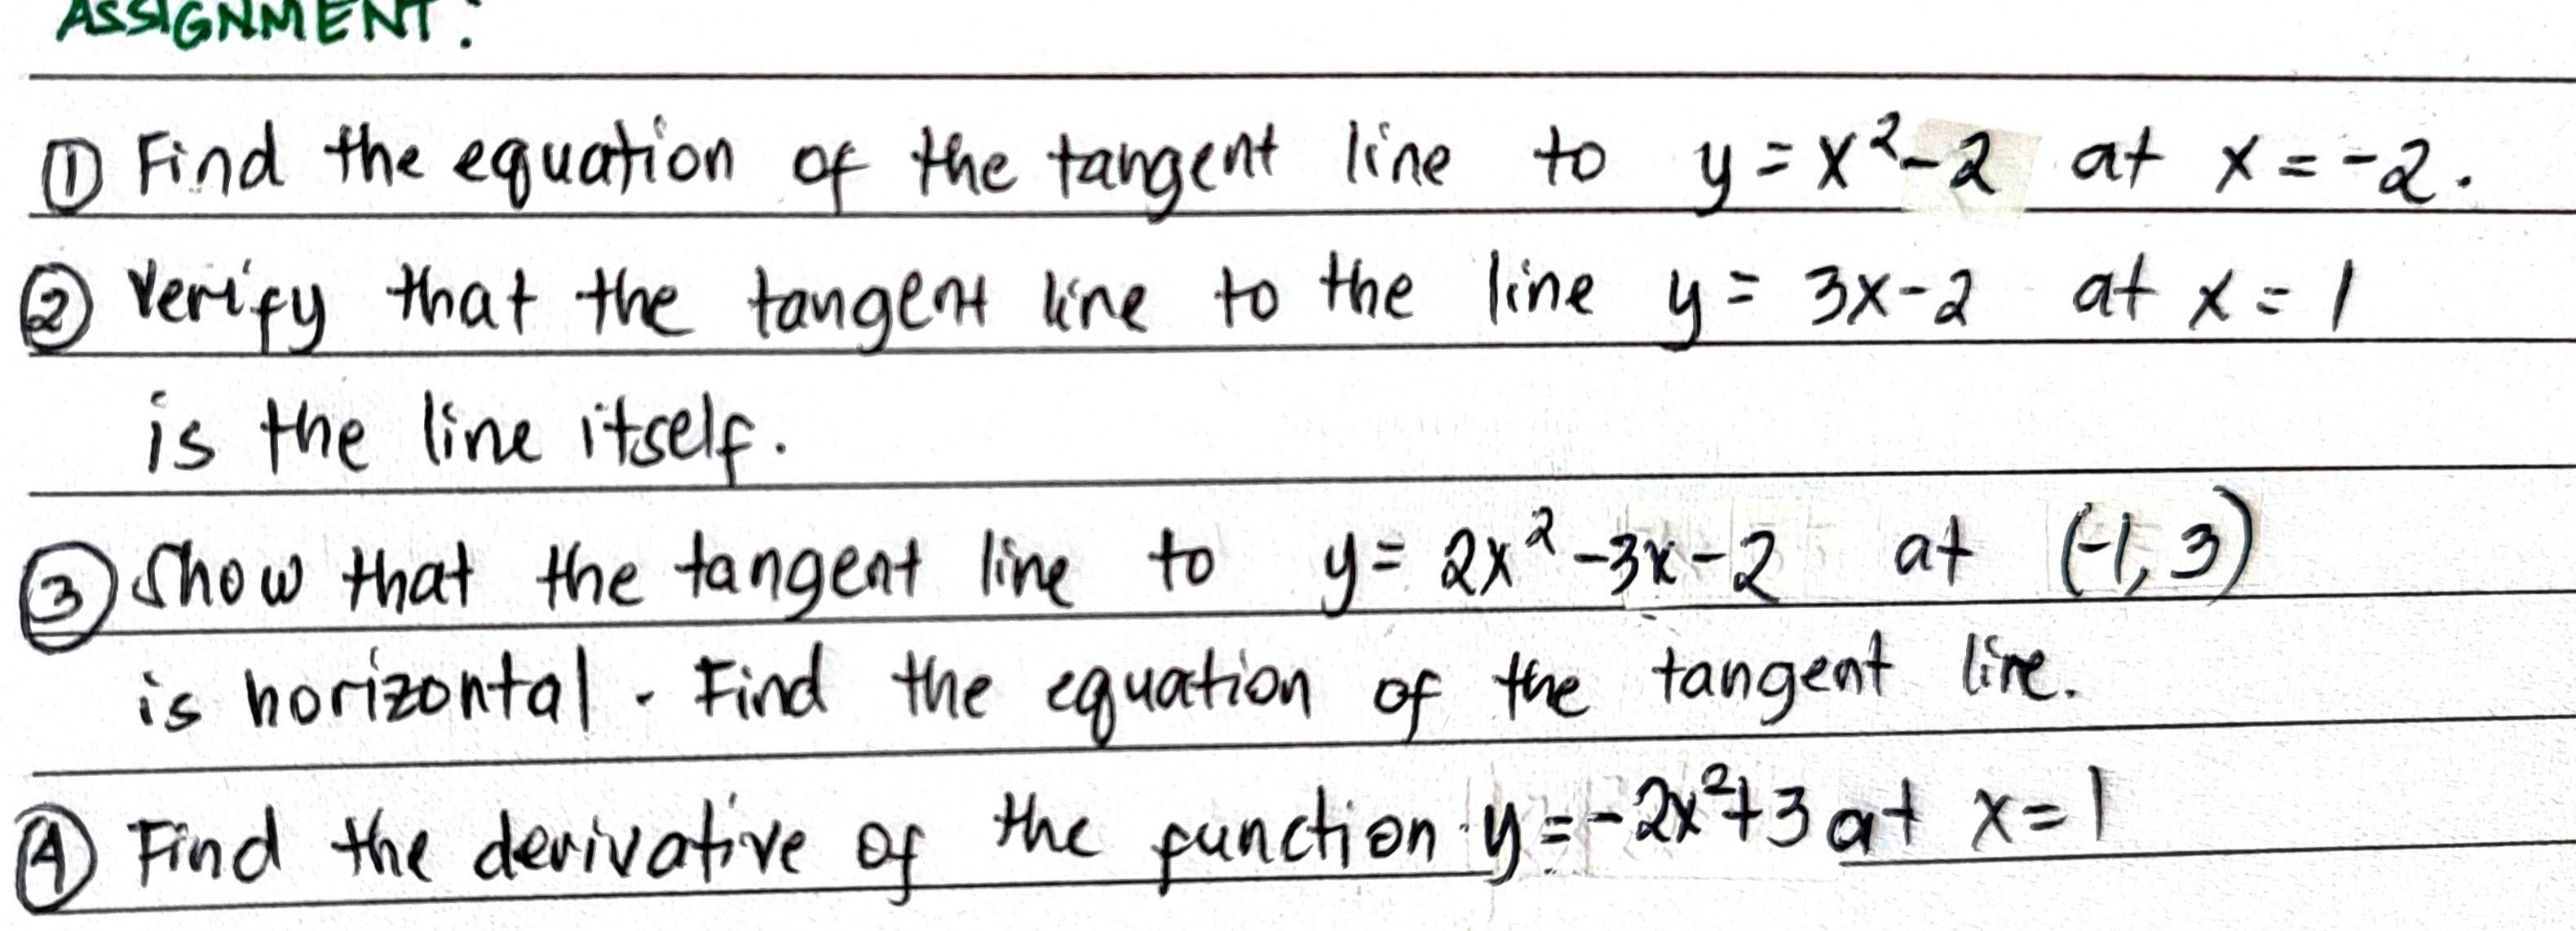 ASSIGNMENT:
① Find the equation of the tangent line to y = x²-2 at x = -2.
② Verify that the tangent line to the line y = 3x-2 at x = 1
is the line itself.
③ Show that the tangent line to y = 2x²-3x-2 at (-1, 3)
is horizontal. Find the equation of the tangent line.
④ Find the derivative of the function y = -2x²+3 at x = 1